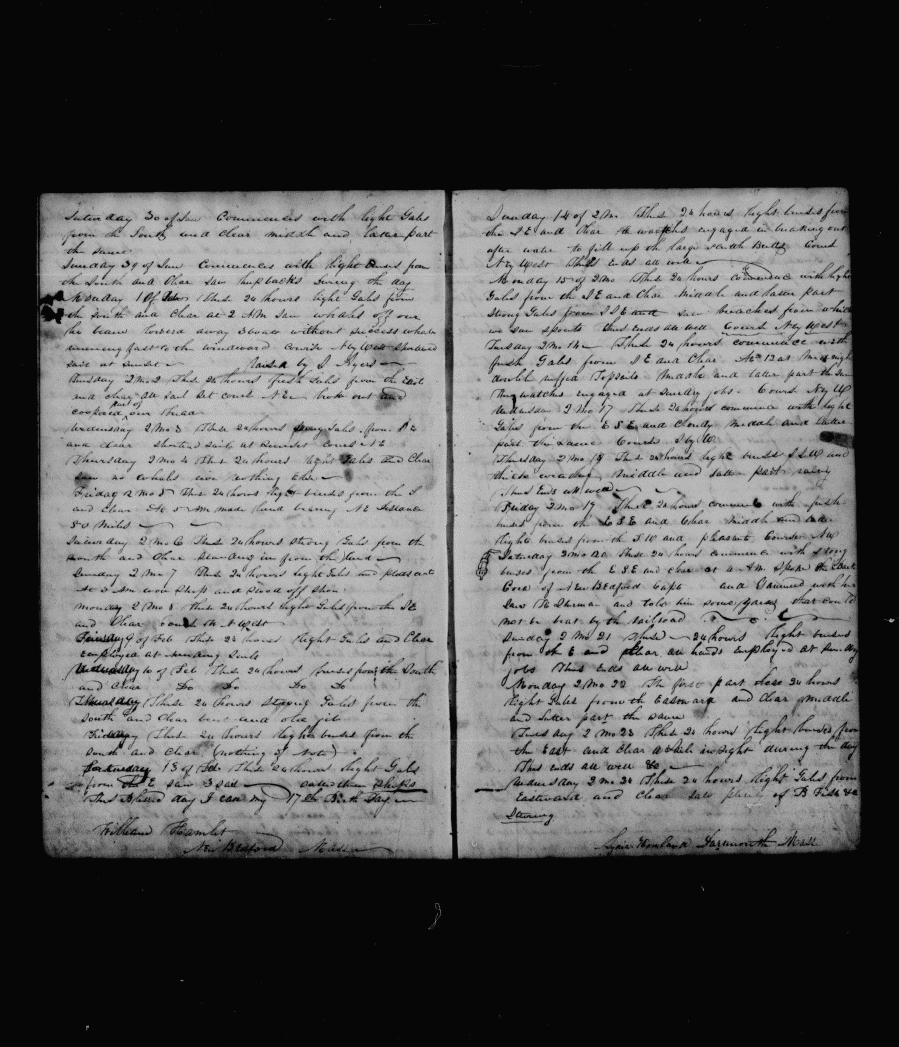 Saturday 30 of Jan Commences with light Gales
from the South and Clear middle and latter part
the same
Sunday 31 of Jan Commences with light Breses from
the South and Clear Saw humpbacks During the day
Monday 1 of Feb These 24 hours light Gales from
the South and Clear at 2 AM Saw whales off our
lee beam lowered away 3 boats without success whales
running fast to the windward Course N by West Shortened
sail at sunset by J Ayers
Tuesday 2 Mo 2 This 24 hours fresh Gales from the East
and clear all sail set course N E broke out and
coopered part of our bread
Wednesday 2 Mo 3 These 24 hours Gales from
and clear shortend Sails at Sunset Course N E
Thursday 2 mo 4 These 24 hours light Gales and Clear
Saw no whales nor nothing else
Friday 2 Mo 5 This 24 hours light breses from the S
and clear At 5 AM made land bearing N E Distance
50 Miles
Saturday 2 Mo 6 This 24 hours strong Gales from the
South and Clear Standing in from the land
Sunday 2 Mo 7 These 24 hours light Gales and pleasant
At 5 Am woar Ship and Stood off shore
Monday 2 Mo 8 These 24 hours light Gales from the SE
and Clear Course N West
9 of Feb This 24 hours light Gales and Clear
Employed at mending Sails
10 of Feb This 24 hours breses from the South
and Clear Do Do Do Do
Thursday These 24 hours strong Gales from the
South and Clear jib
Friday This 24 hours light breses from the
South and Clear (nothing of Note)
Saturday 13 of Feb These 24 hours light Gales
from the E Saw 3 Sail Ships
This Blessed day I can my 17th Birth Day
William Hamlet
New Bedford Mass
Sunday 14 of 2 M This 24 hours light breses from
the S E and Clear the watches engaged in breaking out
after water to fill up the large Butts Course
N by West This ends all well
Monday 15 of 2 Mo These 24 hours commence with light
Gales from the S E and Clear Middle and latter part
strong Gales from S S E and saw breaches from which
we saw spouts This Ends all well Course N by West
Tuesday 2 Mo 16 These 24 hours commence with
fresh Gales from S E and Clear At 12 at Midnight
double reefed Topsails Middle and latter part the same
The watches engaged at Sundry jobs Course N by W
Wednesday 2 Mo 17 These 24 hours commence with light
Gales from the E S E and Cloudy Middle and latter
part the Same Course N by W
Thursday 2 Mo These 24 hours light breses S S W and
thick weather Middle and latter part rainy
Thus Ends all well
Friday 2 mo 17 These 24 hours commence with fresh
breses from the E S E and Clear Middle and latter
light breses from the S W and pleasant Course N W
Saturday 2 mo 20 These 24 hours commence with strong
breses from the E S E and clear at 4 AM Spoke the Bark
Cora of New Bedford Capt and Gammed with her
Saw H Sherman and told him some yarns that could
not be beat by the railroad
Sunday 2 Mo 21 These 24 hours light breses
from the E and Clear all hands Employed at Sunday
jobs This Ends all well
Monday 2 Mo 22 The first part these 24 hours
light Gales from the Eastward and Clear Middle
and latter part the Same
Tuesday 2 Mo 23 These 24 hours light breses from
the East and Clear a Sail in sight during the day
This ends all well &c
Wednesday 2 mo 24 These 24 hours light Gales from
Eastward and Clear Saw plenty of B Fish &c
Steering
Lydia Howland Dartmouth Mass